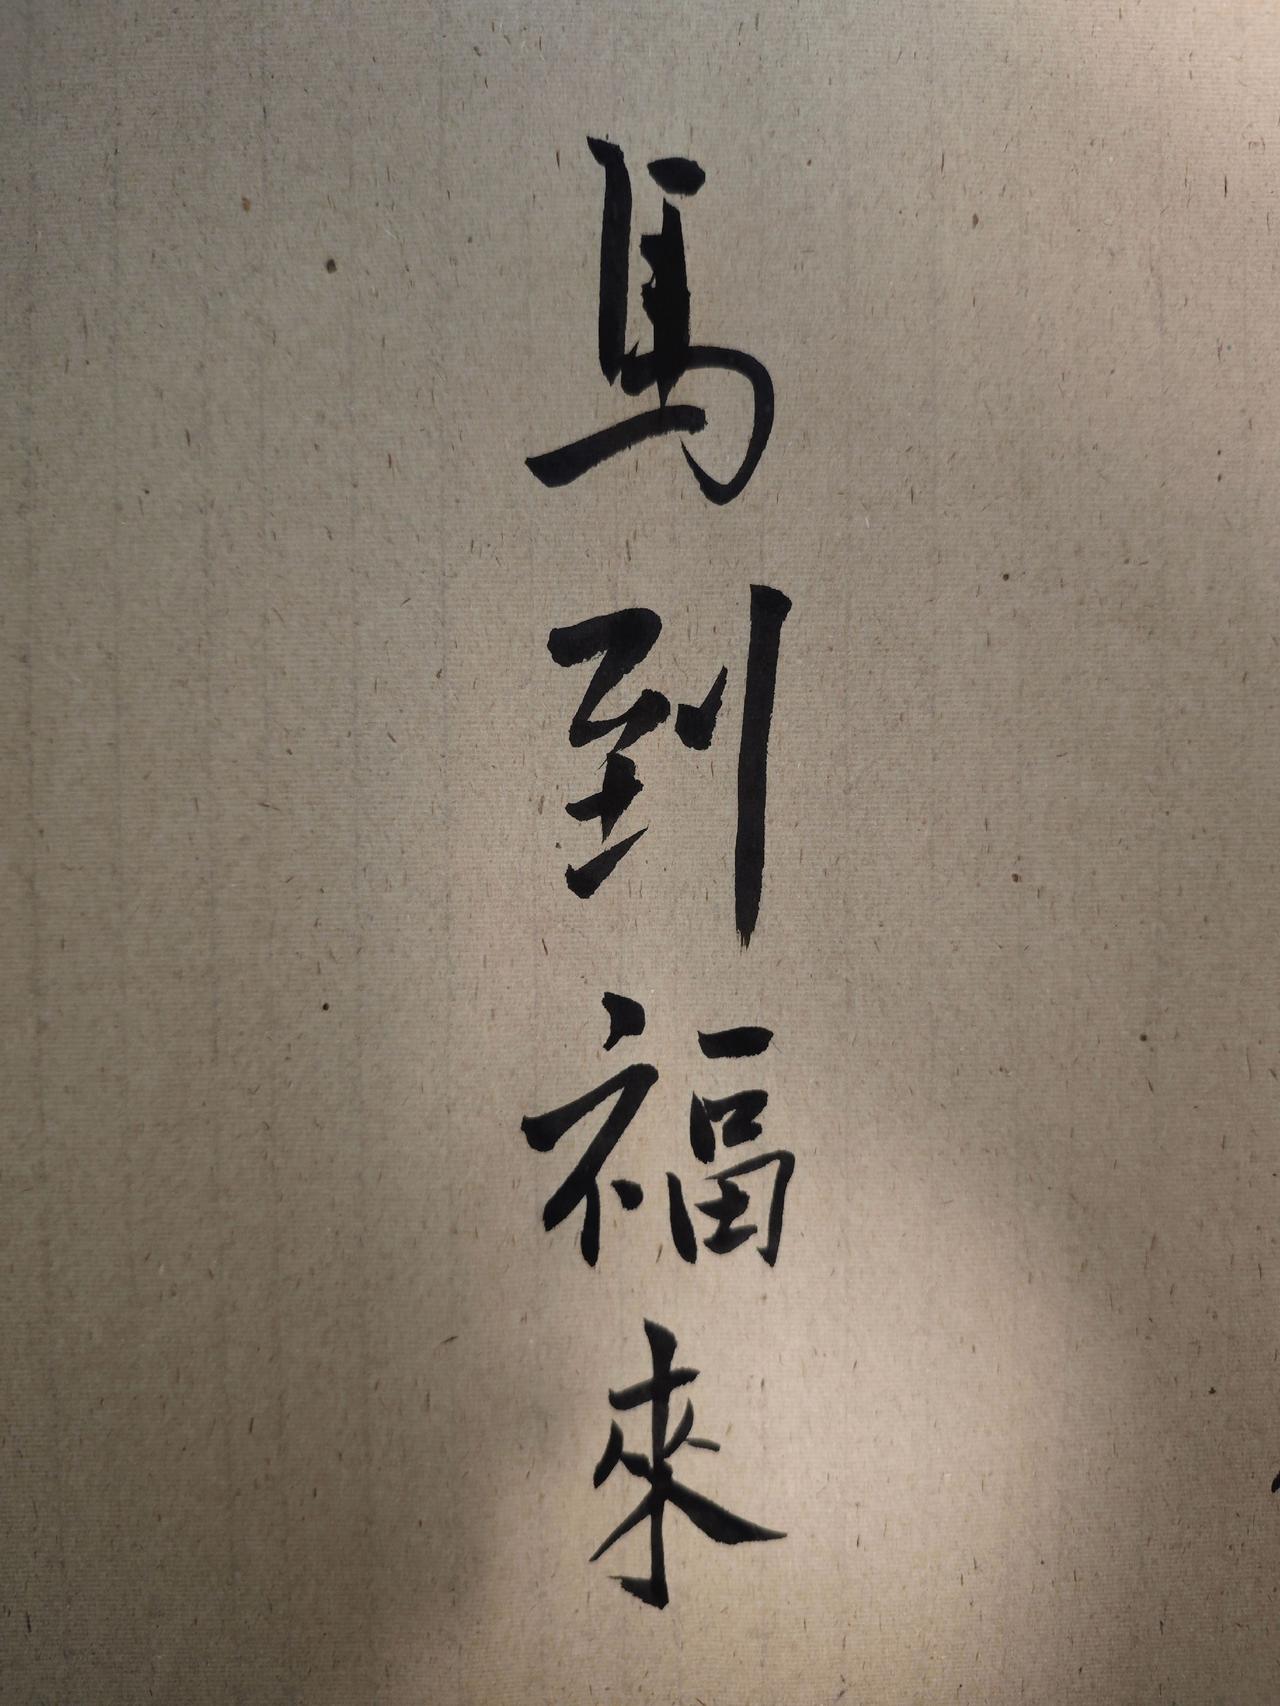 馬到福來